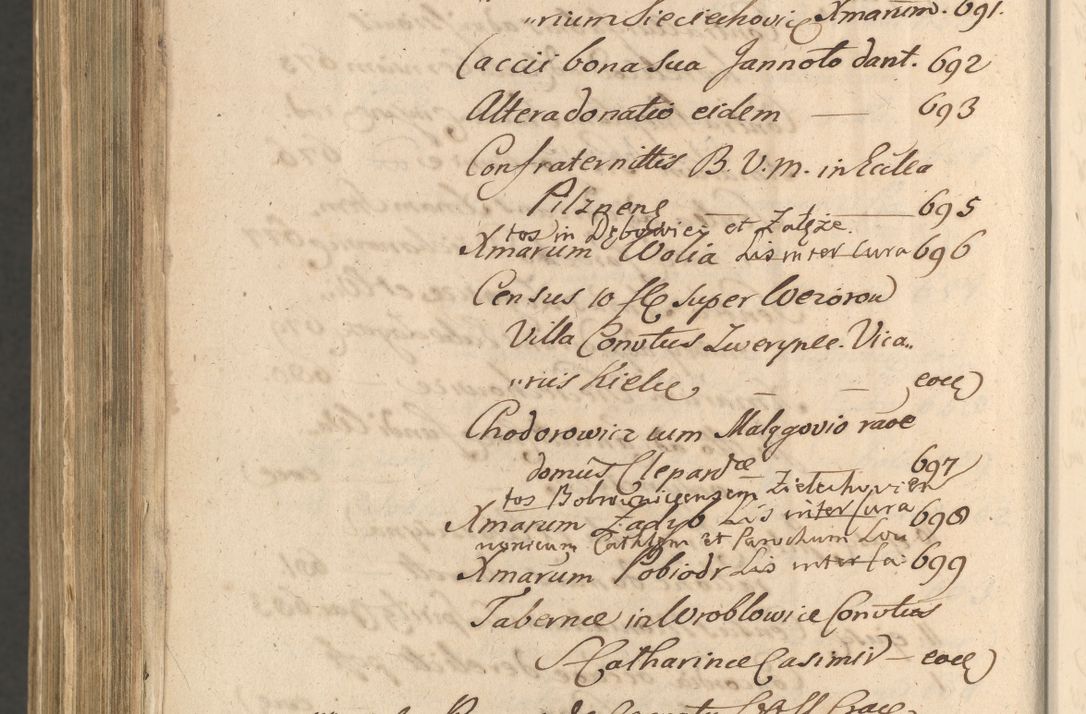 "rium Sieciechovic Xmarum. 691.
Caccii bona sua Jannoto dant. 692
Altera donatio eidem — 693
Confraternittis B. V. M. in Ecclea
Pilznens — 695
tos in Dębowiec et Załęże.
Xmarum Wolia Lis inter Cura 696
Census 10 fl super Wezorow
Villa Convtus Zwerynec. Vica„
"riis Kielc — eoe
Chodorowicz cum Malagovio raoe
domus Clepardae 697
tos et Zielechovien
Xmarum Zadyb Lis inter Cura 698
nonicum Cathlem et Parochum Lou
Xmarum Pobiodr Lis inter Ca: 699
Tabernae in Wroblowice Convtus
S Catharinae Casimir — eoe